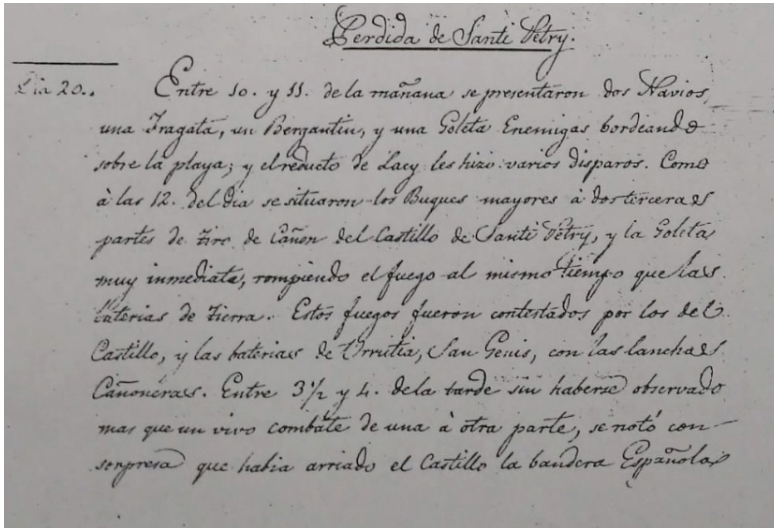 Perdida de Santi Petry.
Dia 20..
Entre 10. y 11. de la mañana se presentaron dos Navios,
una Fragata, un Bergantin, y una Goleta Enemigas bordeando
sobre la playa; y el reducto de Lacy les hizo varios disparos. Como
à las 12. del dia se situaron los Buques mayores à dos terceras
partes de tiro de Cañon del Castillo de Santi Petry, y la Goleta
muy inmediata, rompiendo el fuego al mismo tiempo que las
baterias de tierra. Estos fuegos fueron contestados por los del
Castillo, y las baterias de Urrutia, San Genis, con las lanchas
Cañoneras. Entre 3½ y 4. de la tarde sin haberse observado
mas que un vivo combate de una à otra parte, se notó con
sorpresa que habia arriado el Castillo la bandera Española